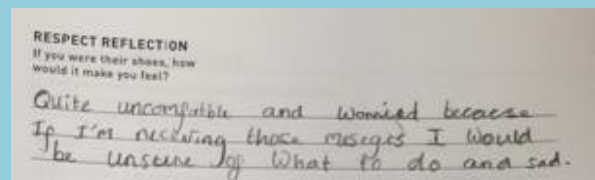 RESPECT REFLECTION
If you were their shoes, how
would it make you feel?
Quite uncompatble and worried becaese
If I'm recieving those meseges I would
be unsure of What to do and sad.